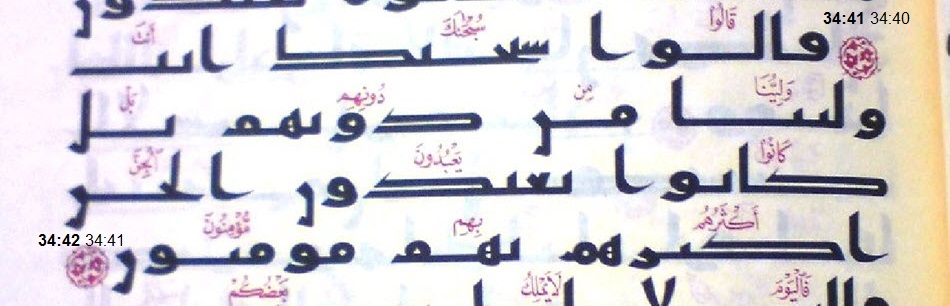 34:41 34:40
قالوا سبحنك انت
قَالُوا۟ سُبْحَٰنَكَ أَنتَ
ولينا من دونهم بل
وَلِيُّنَا مِن دُونِهِم بَلْ
كانوا يعبدون الجن
كَانُوا۟ يَعْبُدُونَ ٱلْجِنَّ
اكثرهم بهم مومنون
أَكْثَرُهُم بِهِم مُّؤْمِنُونَ
34:42 34:41
فَٱلْيَوْمَ لَا يَمْلِكُ بَعْضُكُمْ